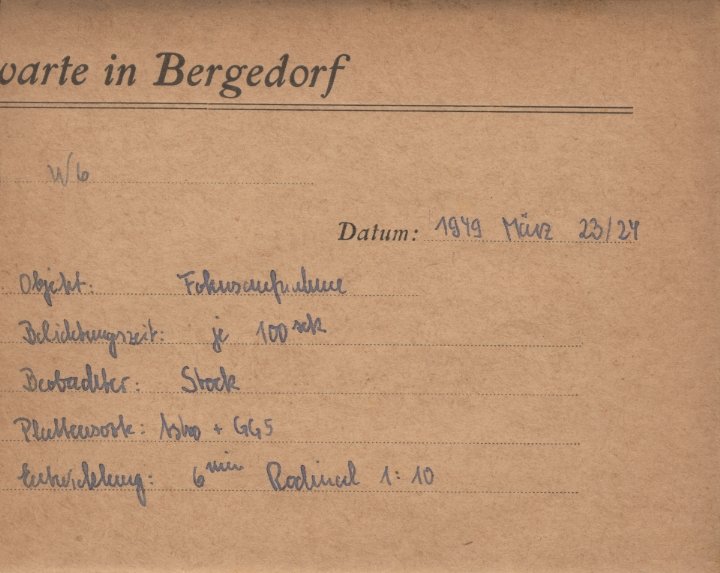 warte in Bergedorf
W6
Datum: 1949 März 23/24
Objekt: Fokusaufnahme
Belichtungszeit: je 100 sek
Beobachter: Stock
Plattensorte: Astro + GG5
Entwicklung: 6 min Rodinal 1:10